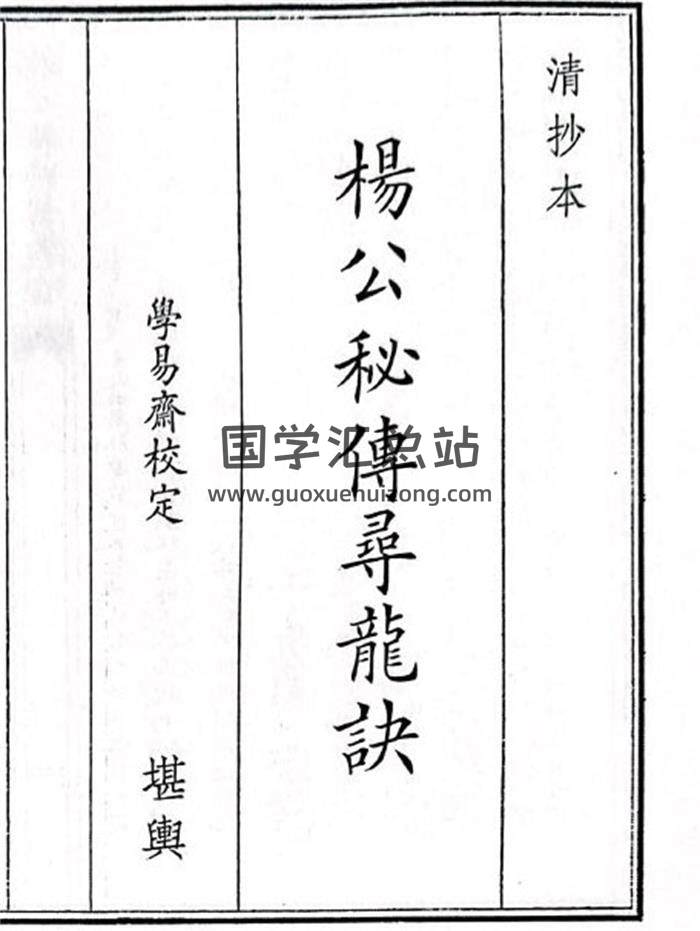 清抄本
楊公秘傳尋龍訣
學易齋校定
堪輿
国学汇总站
www.guoxuehuizong.com